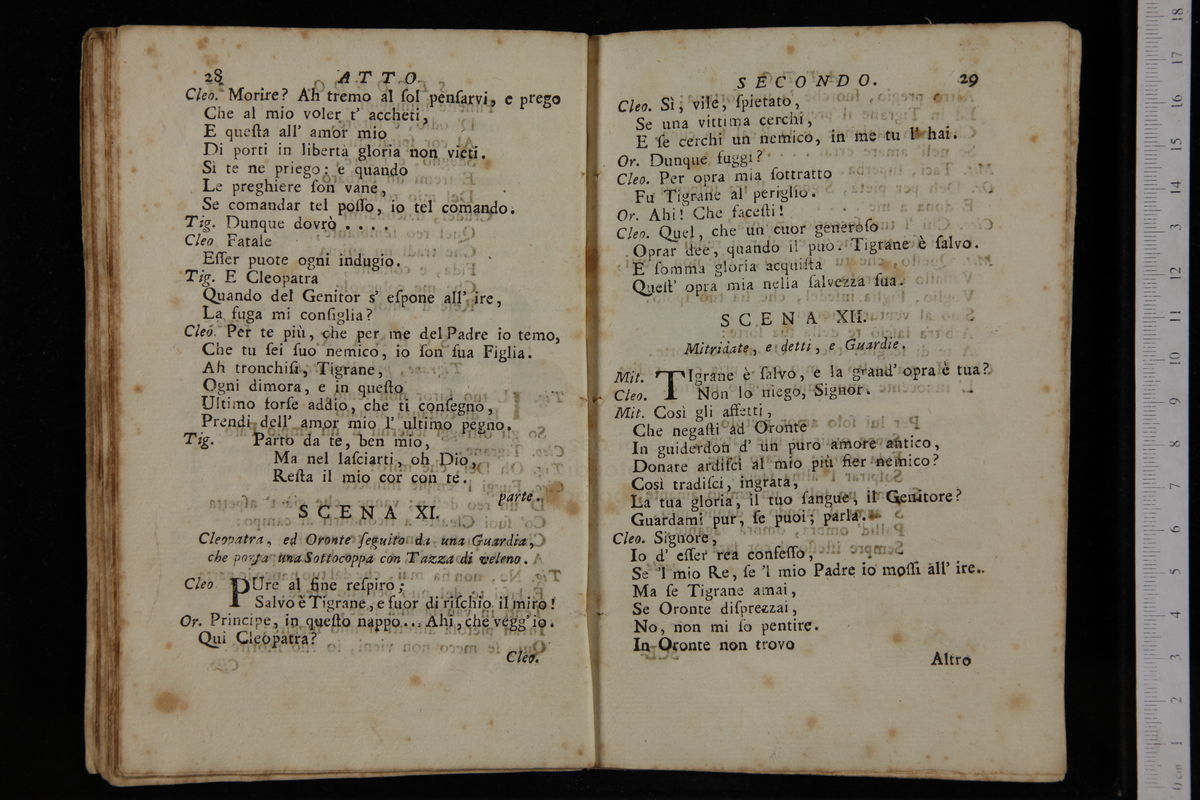 28 ATTO
Cleo. Morire? Ah tremo al ſol penſarvi, e prego
Che al mio voler t' accheti,
E queſta all' amor mio
Di porti in libertà gloria non vieti.
Sì te ne priego; e quando
Le preghiere ſon vane,
Se comandar tel poſſo, io tel comando.
Tig. Dunque dovrò . . . .
Cleo Fatale
Eſſer puote ogni indugio.
Tig. E Cleopatra
Quando del Genitor s' eſpone all' ire,
La fuga mi conſiglia?
Cleo. Per te più, che per me del Padre io temo,
Che tu ſei ſuo nemico, io ſon ſua Figlia.
Ah tronchiſi, Tigrane,
Ogni dimora, e in queſto
Ultimo forſe addio, che ti conſegno,
Prendi dell' amor mio l' ultimo pegno.
Tig. Parto da te, ben mio,
Ma nel laſciarti, oh Dio,
Reſta il mio cor con te.
parte.
SCENA XI.
Cleopatra, ed Oronte ſeguito da una Guardia,
che porta una Sottocoppa con Tazza di veleno.
Cleo PUre al fine reſpiro;
Salvo è Tigrane, e fuor di riſchio il miro!
Or. Principe, in queſto nappo... Ahi, che vegg'io.
Qui Cleopatra?
Cleo.
SECONDO. 29
Cleo. Sì, vile, ſpietato,
Se una vittima cerchi,
E ſe cerchi un nemico, in me tu l' hai.
Or. Dunque fuggì?
Cleo. Per opra mia ſottratto
Fu Tigrane al periglio.
Or. Ahi! Che faceſti!
Cleo. Quel, che un cuor generoſo
Oprar dee, quando il può. Tigrane è ſalvo.
E ſomma gloria acquiſta
Queſt' opra mia nella ſalvezza ſua.
SCENA XII.
Mitridate, e detti, e Guardie.
Mit. TIgrane è ſalvo, e la grand' opra è tua?
Cleo. Non lo niego, Signor.
Mit. Così gli affetti,
Che negaſti ad Oronte
In guiderdon d' un puro amore antico,
Donare ardiſci al mio più fier nemico?
Così tradiſci, ingrata,
La tua gloria, il tuo ſangue, il Genitore?
Guardami pur, ſe puoi; parla.
Cleo. Signore,
Io d' eſſer rea confeſſo,
Se 'l mio Re, ſe 'l mio Padre io moſſi all' ire..
Ma ſe Tigrane amai,
Se Oronte diſprezzai,
No, non mi ſo pentire.
In Oronte non trovo
Altro